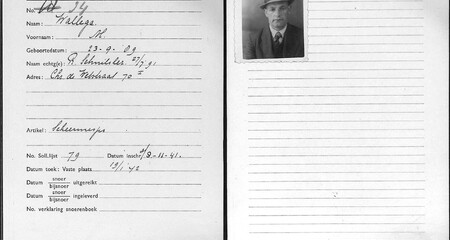 No. 34
Naam: Wallega.
Voornaam: M.
Geboortedatum: 23-9-09
Naam echtg(e): R. Schnitzler 27/7 91
Adres: Chs. de Wetstraat 70 II
Artikel: Scheermesjes.
No. Soll.lijst 79 Datum inschr. 3-11-41.
Datum toek: Vaste plaats 19/1 42
Datum snoer
bijsnoer uitgereikt
Datum snoer
bijsnoer ingeleverd
No. verklaring snoerenboek